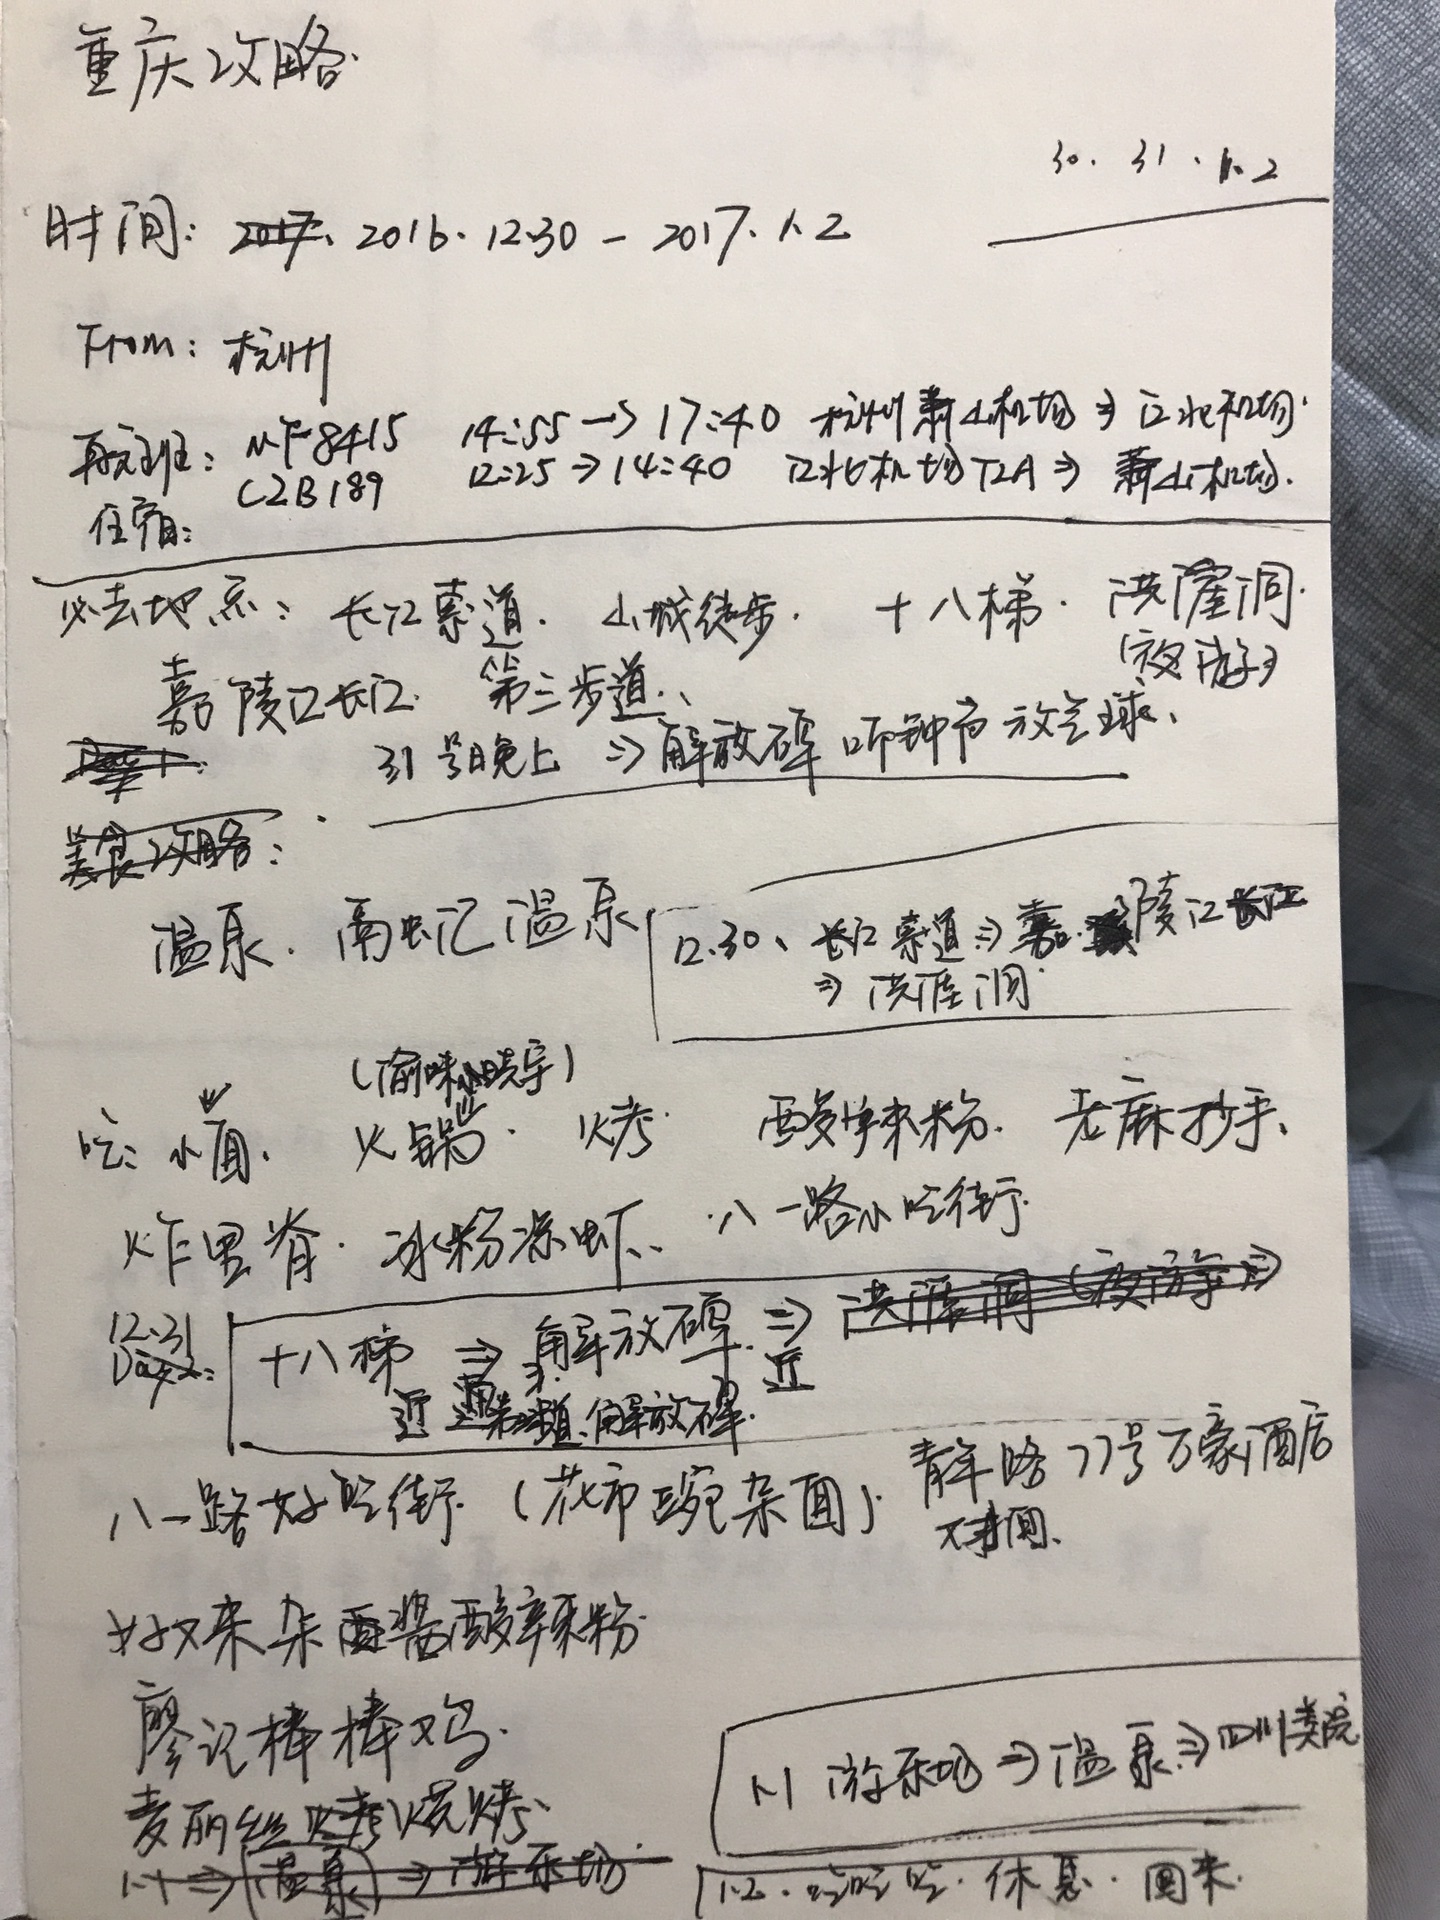 重庆攻略
30. 31. 1.2
时间: 2017. 2016. 12.30 - 2017. 1.2
From: 杭州
航班: MF8415 14:55 → 17:40 杭州萧山机场 ⇒ 江北机场
CZ8189 12:25 ⇒ 14:40 江北机场T2A ⇒ 萧山机场.
住宿:
必去地点: 长江索道. 山城徒步. 十八梯. 洪崖洞.
(夜游)
嘉陵江长江. 第三步道.
31号晚上 ⇒ 解放碑 吊钟 放气球、
美食攻略:
温泉. 温泉
12.30、长江索道 ⇒ 嘉陵江长江
⇒ 洪崖洞
(渝味晓宇)
吃: 小面、火锅. 烤 酸辣粉. 老麻抄手、
炸里脊. 冰粉凉虾、八一路小吃街
12.31
Day2:
十八梯 ⇒ 解放碑 ⇒ 洪崖洞 (夜游)
近 近
解放碑.
八一路好吃街. (花市豌杂面) 青年路77号万豪酒店
对面、
好又来 酸辣粉
廖记棒棒鸡.
麦丽丝烤 烧烤
1.1 游乐场 ⇒ 温泉 ⇒ 四川美院
1.1 ⇒ 温泉 ⇒ 游乐场
1.2. 吃吃吃. 休息. 回来.